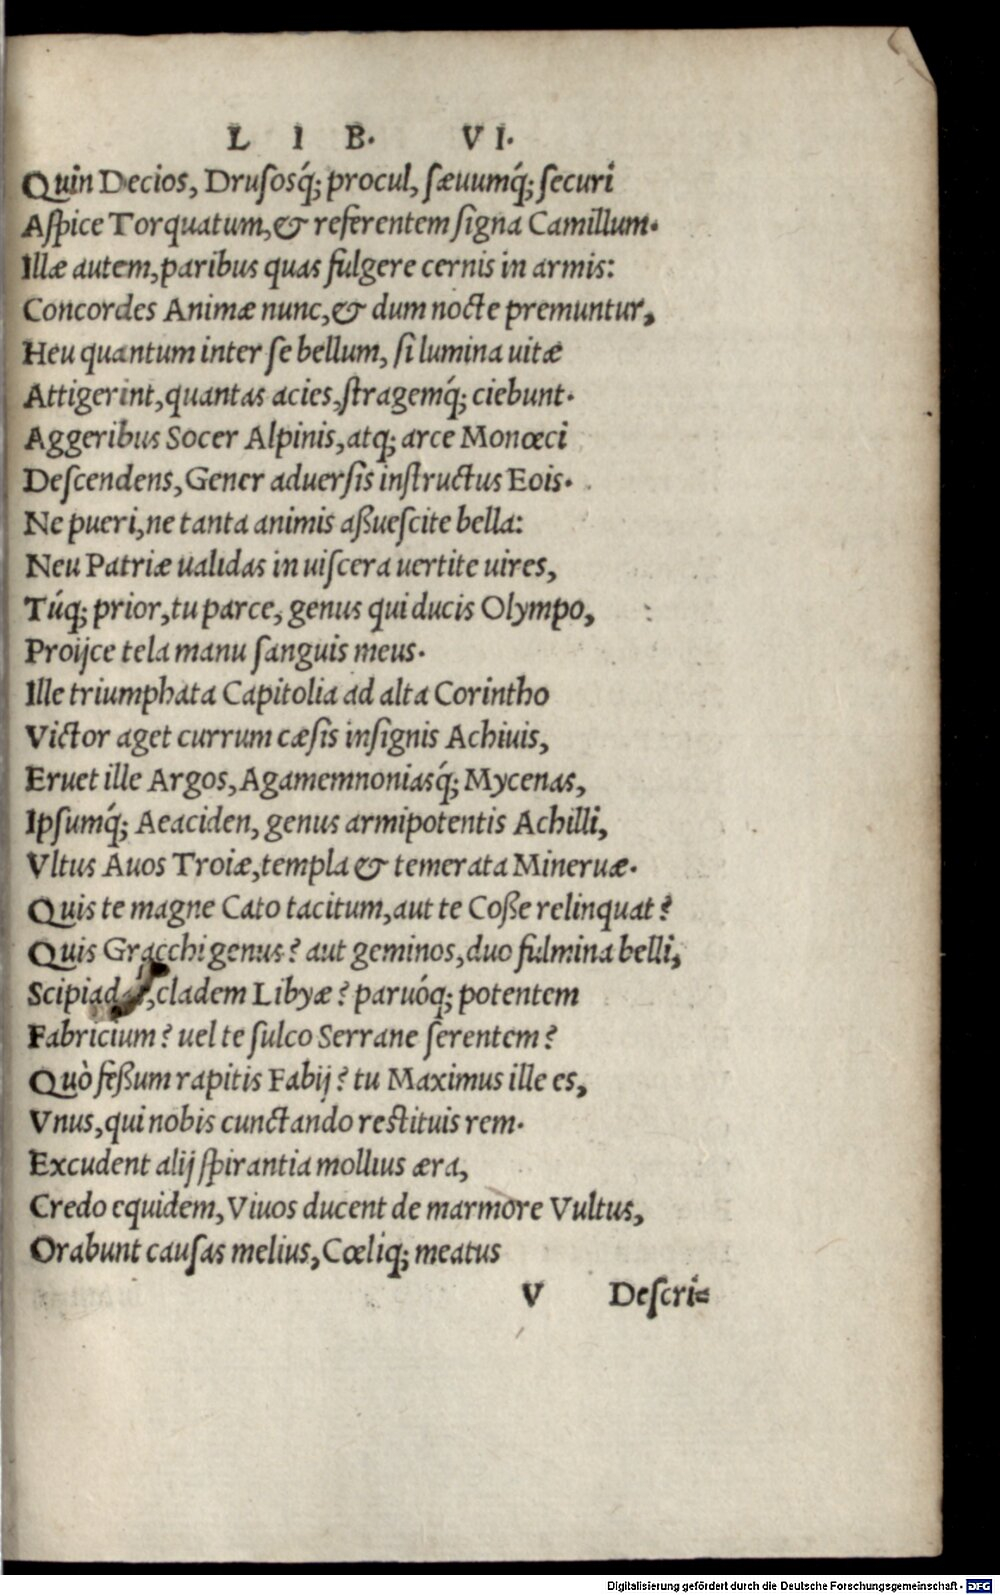 L I B. VI.
Quin Decios, Druſosq́; procul, ſæuumq́; ſecuri
Aſpice Torquatum, & referentem ſigna Camillum.
Illæ autem, paribus quas fulgere cernis in armis:
Concordes Animæ nunc, & dum nocte premuntur,
Heu quantum inter ſe bellum, ſi lumina uitæ
Attigerint, quantas acies, ſtragemq́; ciebunt.
Aggeribus Socer Alpinis, atq; arce Monœci
Deſcendens, Gener aduerſis inſtructus Eois.
Ne pueri, ne tanta animis aßueſcite bella:
Neu Patriæ ualidas in uiſcera uertite uires,
Túq; prior, tu parce, genus qui ducis Olympo,
Proijce tela manu ſanguis meus.
Ille triumphata Capitolia ad alta Corintho
Victor aget currum cæſis inſignis Achiuis,
Eruet ille Argos, Agamemnoniasq́; Mycenas,
Ipſumq́; Aeaciden, genus armipotentis Achilli,
Vltus Auos Troiæ, templa & temerata Mineruæ.
Quis te magne Cato tacitum, aut te Coße relinquat?
Quis Gracchi genus? aut geminos, duo fulmina belli,
Scipiadas, cladem Libyæ? paruóq; potentem
Fabricium? uel te ſulco Serrane ſerentem?
Quò feßum rapitis Fabij? tu Maximus ille es,
Vnus, qui nobis cunctando reſtituis rem.
Excudent alij ſpirantia mollius æra,
Credo equidem, Viuos ducent de marmore Vultus,
Orabunt cauſas melius, Cœliq; meatus
V Deſcri=
Digitalisierung gefördert durch die Deutsche Forschungsgemeinschaft - DFG